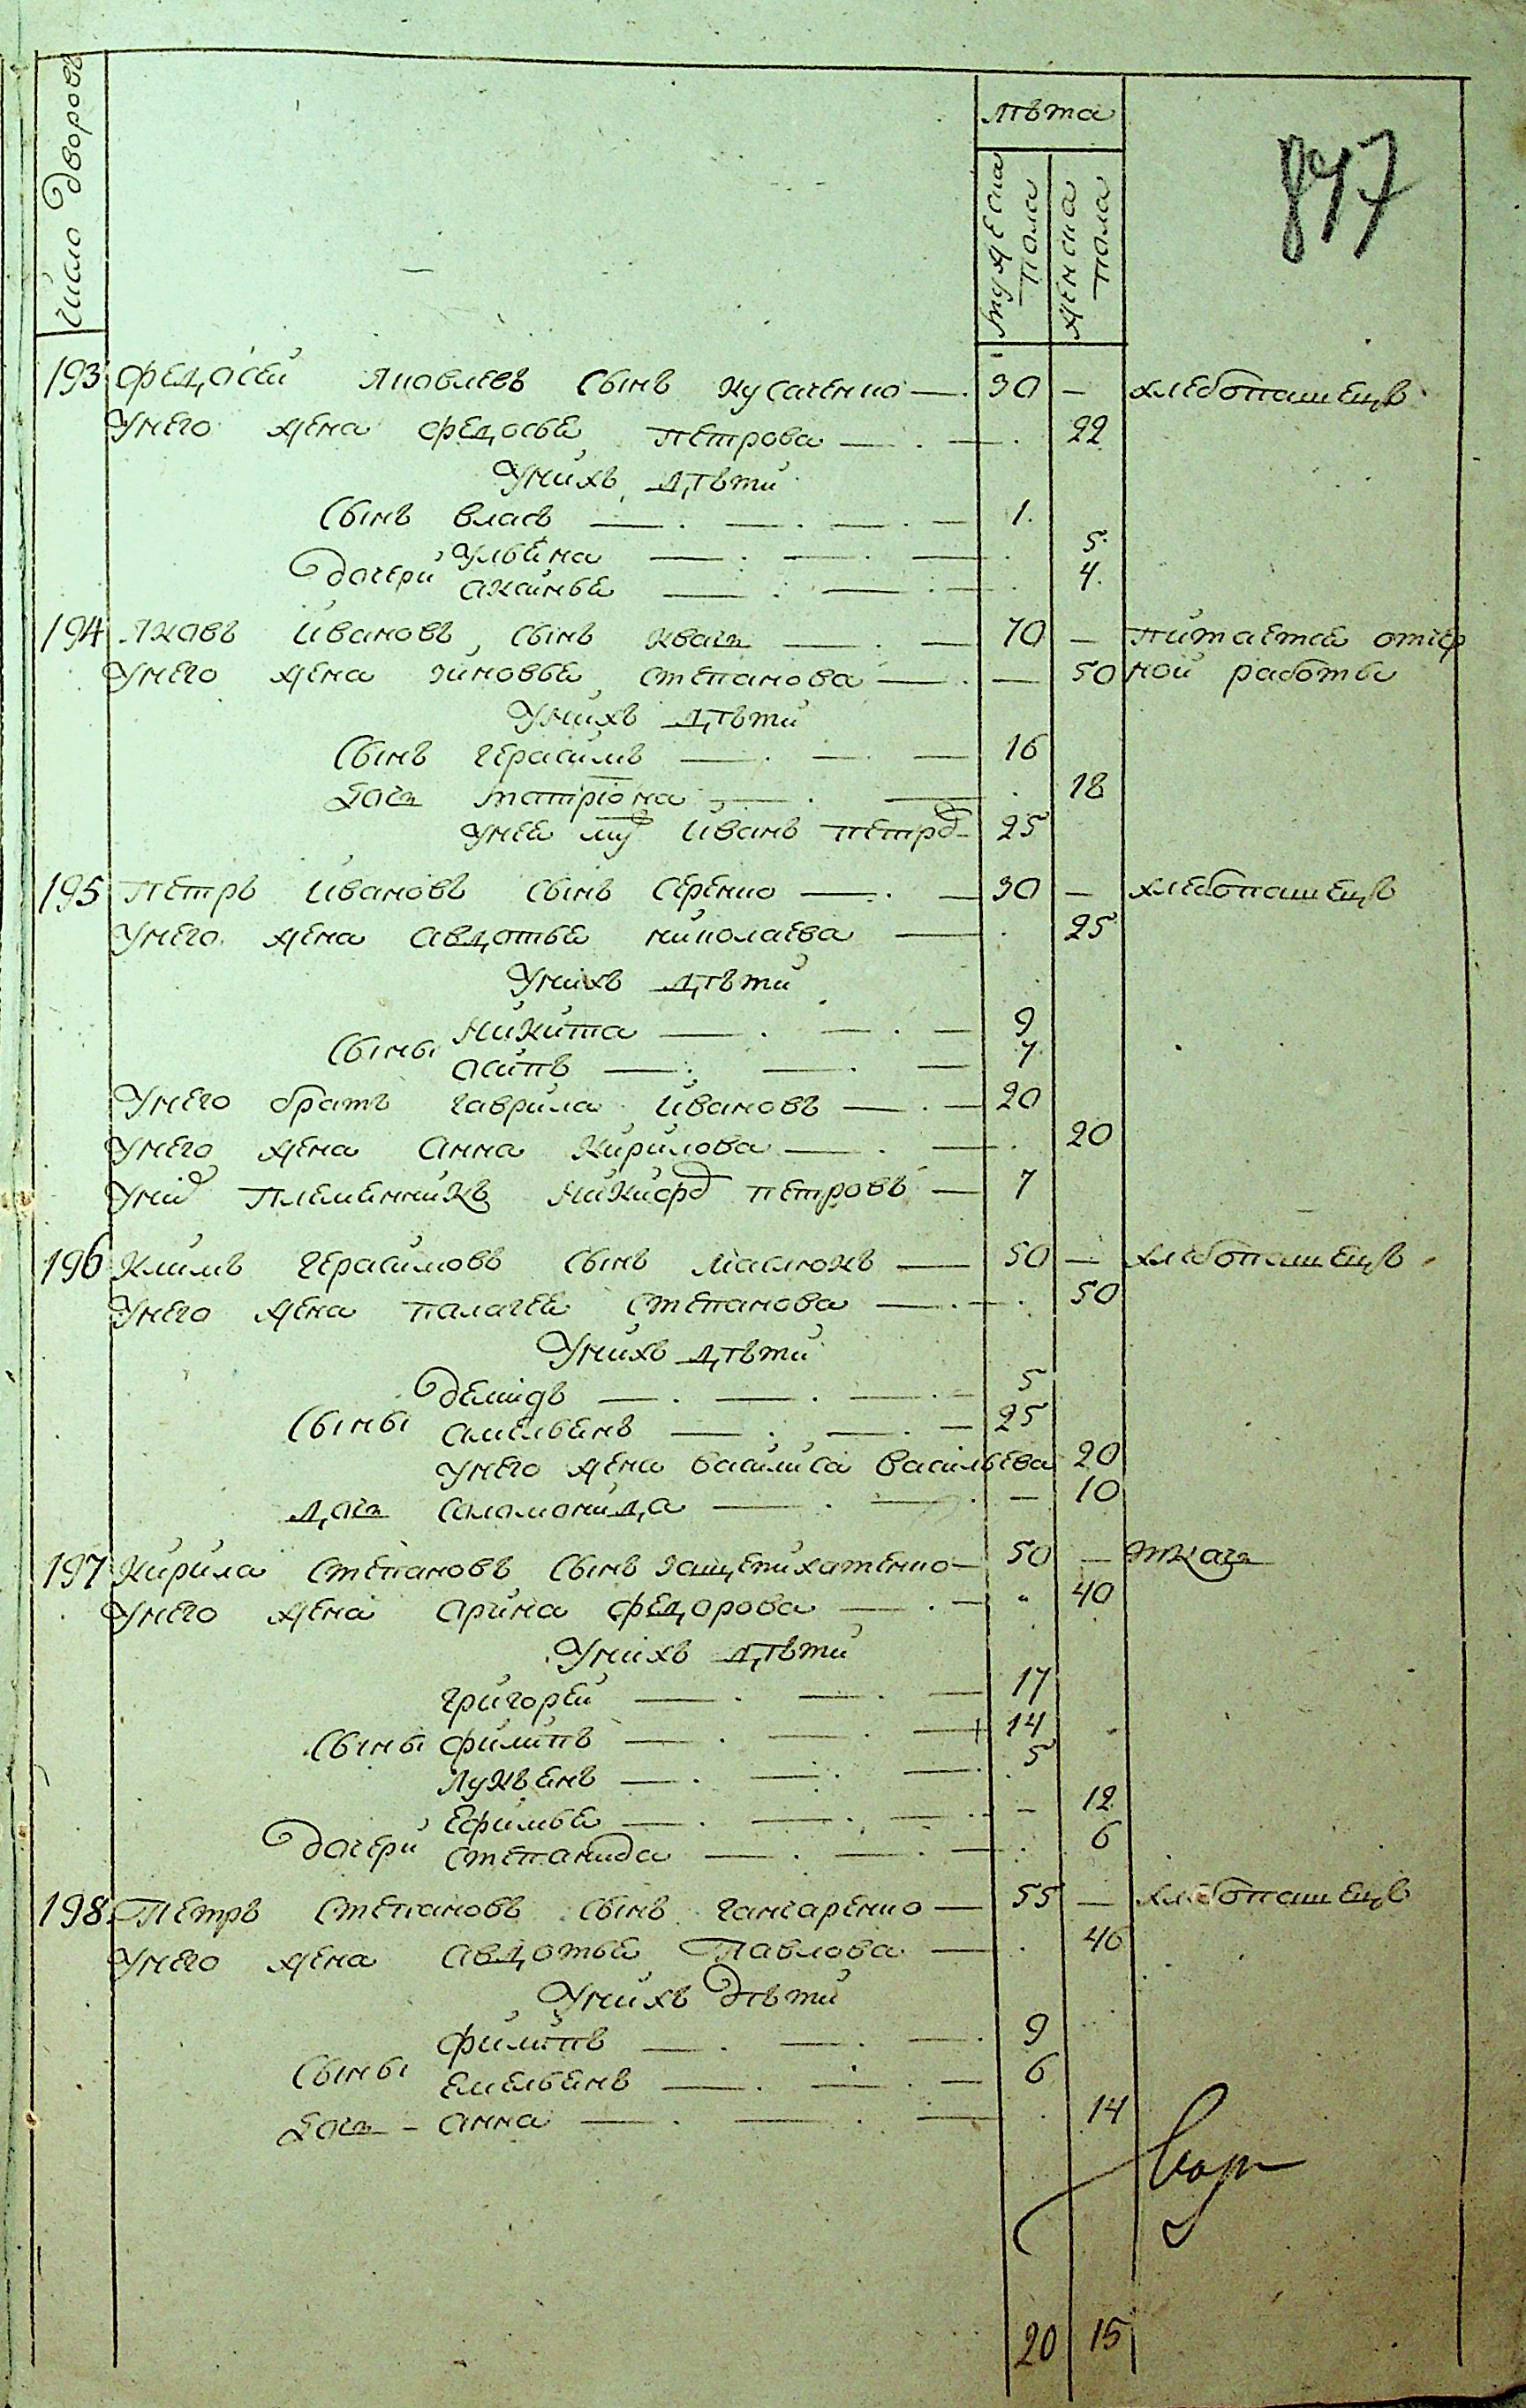 число дворовъ
лѣта
мужеска пола
женска пола
847
193 Федосеи Яковлевъ сынъ Кусаченко — 30 — хлебопашецъ
Унего жена Федосье Петрова — 22
Унихъ дѣти
сынъ Власъ — 1
дочери Ульѣна — 5
Аксинье — 4
194 Яковъ Ивановъ сынъ Квача — 70 — питаетсе отчер
Унего жена Зиновье Степанова — 50 ной работы
Унихъ дѣти
сынъ Герасимъ — 16
доча Матрiона — 18
Унее му Иванъ Петро — 25
195 Петръ Ивановъ сынъ Серенко — 30 — хлебопашецъ
Унего жена Авдотье Николаева — 25
Унихъ дѣти
сыны Никита — 9
Осипъ — 7
Унего братъ Гаврила Ивановъ — 20
Унего жена Анна Кирилова — 20
Унiх племенникъ Никифо Петровъ — 7
196 Климъ Герасимовъ сынъ Маслюкъ — 50 — хлебопашецъ
Унего жена Палагее Степанова — 50
Унихъ дѣти
Демидъ — 5
сыны Амельенъ — 25
Унего жена Василиса Васильева 20
доча Соломонида — 10
197 Кирила Степановъ сынъ Защепихатенко — 50 — ткача
Унего жена Арина Федорова — 40
Унихъ дѣти
Григореи — 17
сыны Филипъ — 14
Лукъенъ — 5
дочери Ефимье — 12
Степанида — 6
198 Петръ Степановъ сынъ Ганчаренко — 55 — хлебопашецъ
Унего жена Авдотье Павлова — 46
Унихъ дѣти
Филипъ — 9
сыны Емельенъ — 6
доча — Анна — 14
20 15